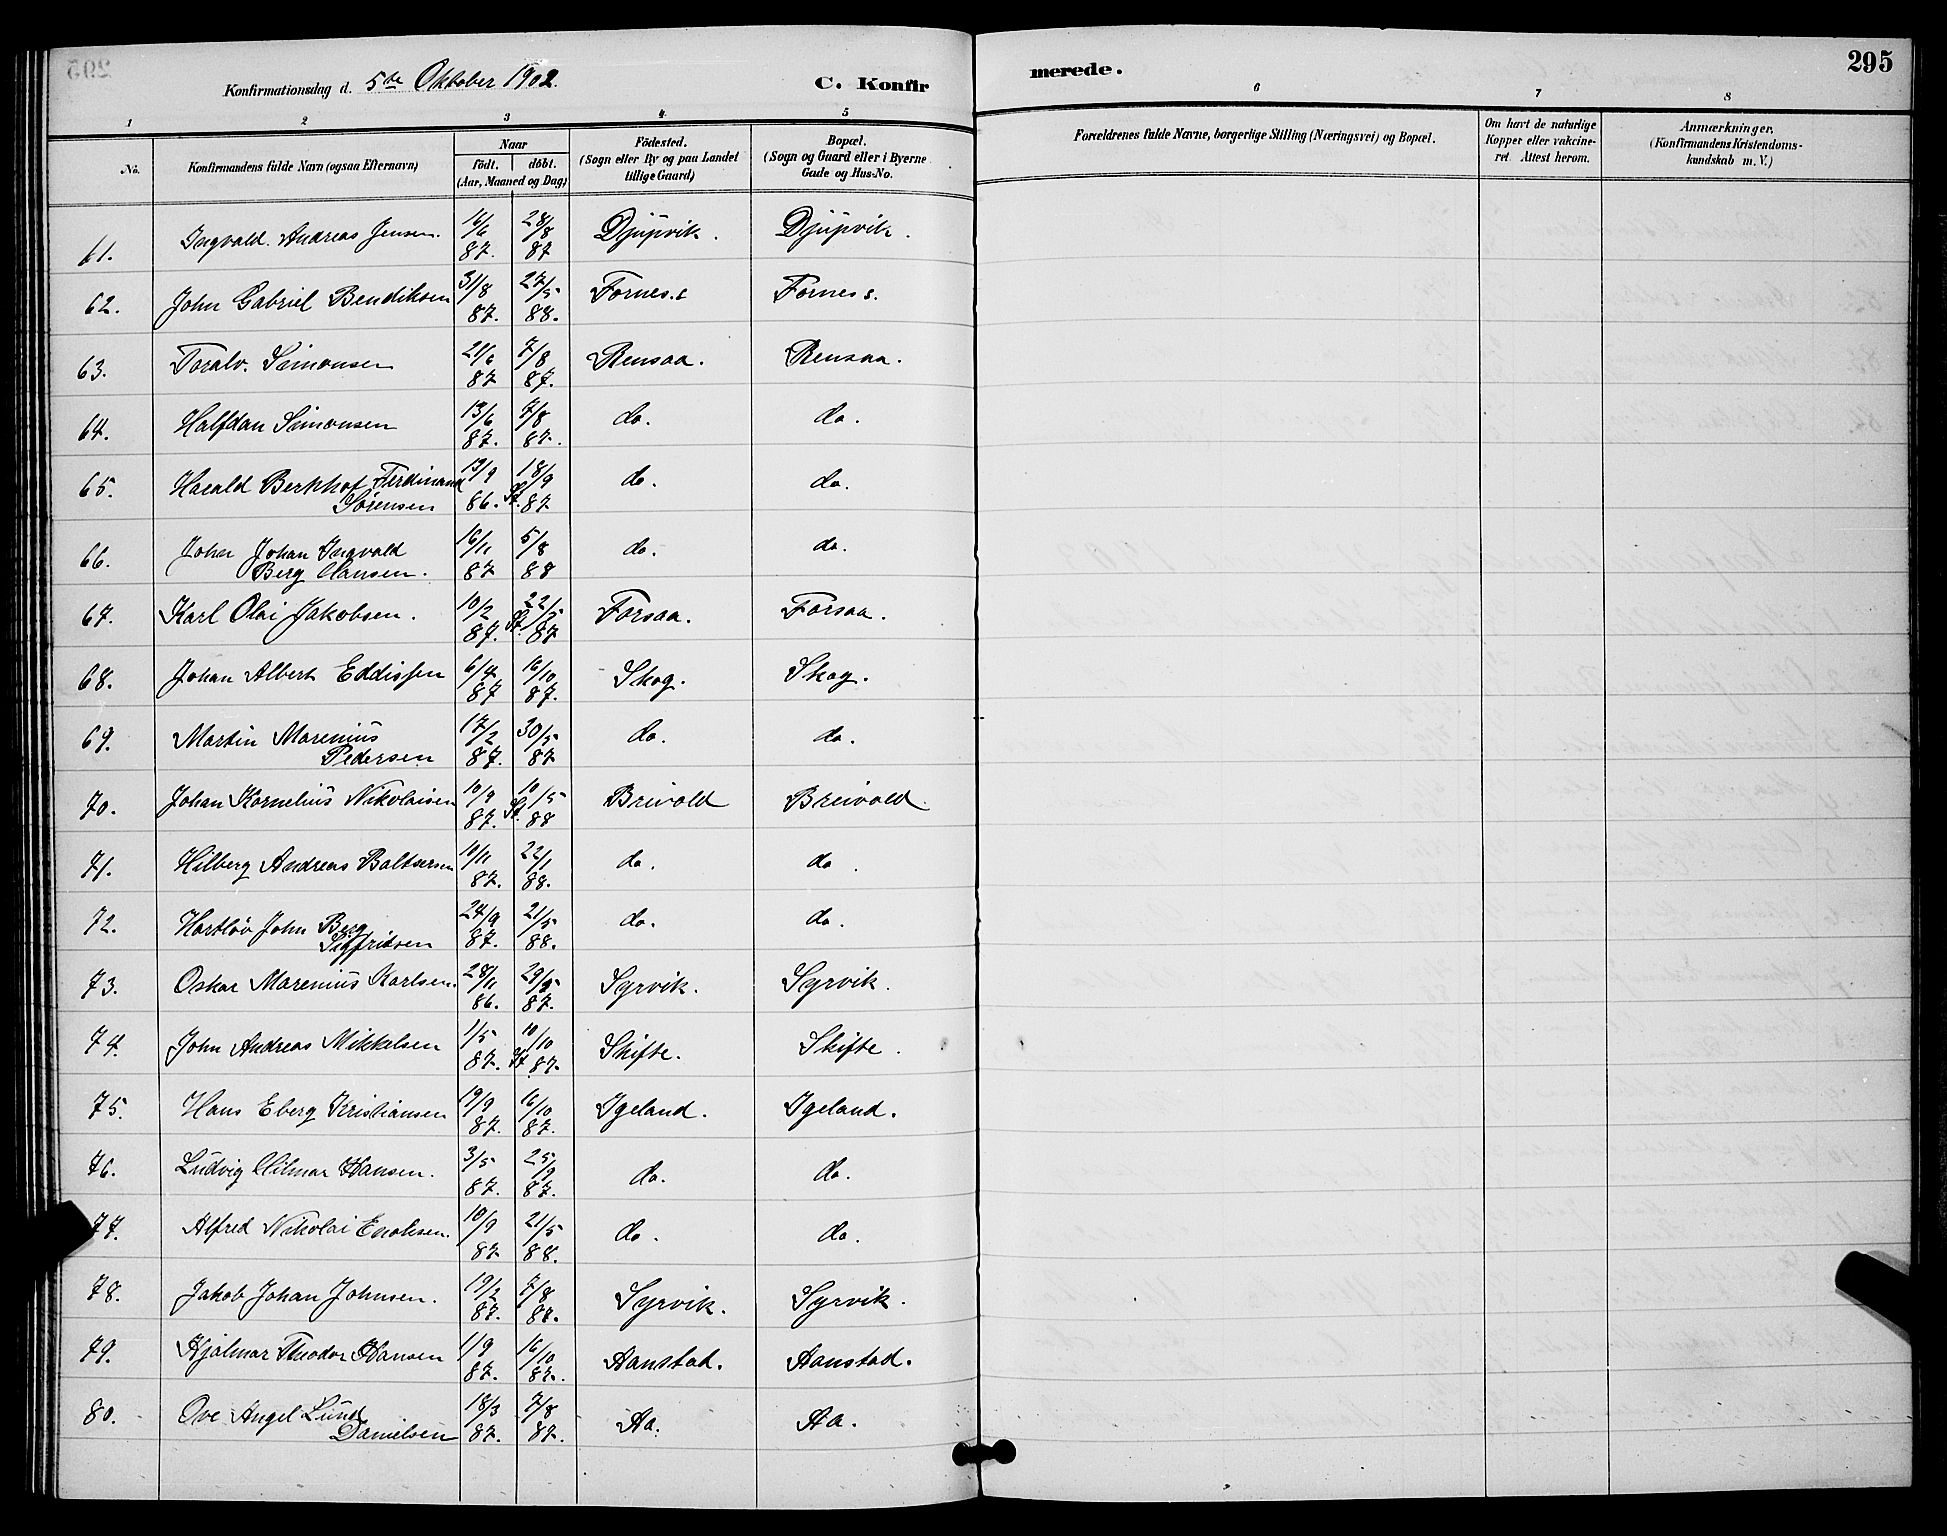 295
Konfirmationsdag d. 5te Oktober 1902. C. Konfirmerede.
1 2 3 4 5 6 7 8
No. Konfirmandens fulde Navn (ogsaa Efternavn) Naar födt. döbt. (Aar, Maaned og Dag) Födested. (Sogn eller By og paa Landet tillige Gaard) Bopæl. (Sogn og Gaard eller i Byerne Gade og Hus-No. Forældrenes fulde Navne, borgerlige Stilling (Næringsvei) og Bopæl. Om havt de naturlige Kopper eller vakcineret. Attest herom. Anmærkninger, (Konfirmandens Kristendomskundskab m. V.)
61. Ingvald Andreas Jensen. 16/6 87. 28/8 87 Djupvik. Djupvik.
62. John Gabriel Bendiksen 31/8 87. 27/5 88. Forness Forness.
63. Toralv. Simonsen 21/6 87 7/8 87. Rensaa. Rensaa.
64. Halfdan Simonsen 13/6 87. 7/8 87. do. do.
65. Harald Berkhof Ferdinand Sörensen 13/9 86. St. 18/9 87 do. do.
66. John Johan Ingvald Berg Hansen. 16/11 87 5/8 88 do. do.
67. Karl Olai Jakobsen. 10/2 87. St. 22/5 87 Forsaa. Forsaa.
68. Johan Albert Eddissen 6/4 87 16/10 87. Skog. Skog.
69. Martin Marenius Pedersen 17/2 87. 30/5 87 do. do.
70. Johan Kornelius Nikolaisen 10/9 87. St. 10/5 88 Breivold Breivold.
71. Hilberg Andreas Baltsersen 10/11 87. 22/1 88. do. do.
72. Hartlöv John Berg Sigfridsen 24/9 87. 21/5 88. do. do.
73. Oskar Marenius Karlsen. 28/11 86. 29/5 87. Syrvik. Syrvik.
74. John Andreas Mikkelsen 1/5 87. St. 10/10 87. Skifte. Skifte.
75. Hans Eberg Kristiansen 19/9 87. 16/10 87. Igeland. Igeland.
76. Ludvig Hilmar Hansen. 3/5 87. 25/9 87. do. do.
77. Alfred Nikolai Enoksen. 10/9 87 21/5 88. do. do.
78. Jakob Johan Johnsen. 19/2 87. 7/8 87. Syrvik. Syrvik.
79. Hjalmar Theodor Hansen 1/9 87. 16/10 87. Aanstad. Aanstad.
80. Ove Angel Lund Danielsen 18/3 87. 7/8 87. Aa. Aa.